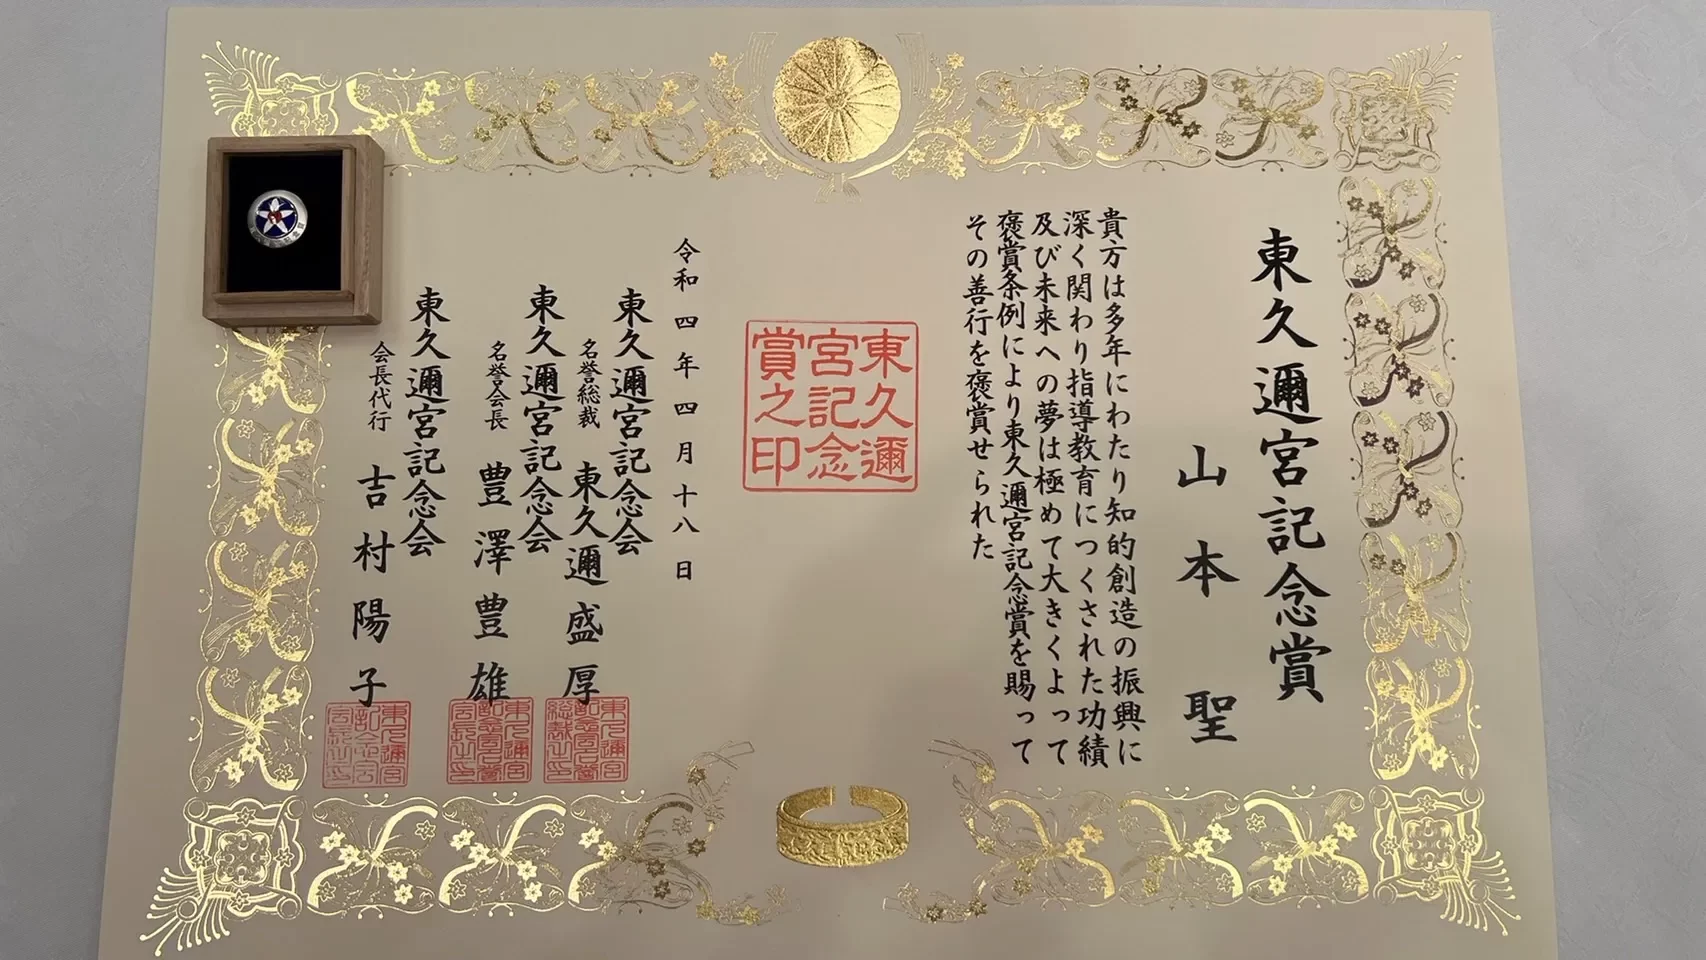 東久邇宮記念賞
山本聖
貴方は多年にわたり知的創造の振興に
深く関わり指導教育につくされた功績
及び未来への夢は極めて大きくよって
褒賞条例により東久邇宮記念賞を賜って
その善行を褒賞せられた
東久邇
宮記念
賞之印
令和四年四月十八日
東久邇宮記念会
名誉総裁 東久邇盛厚
東久邇宮記念会
名誉会長 豊澤豊雄
東久邇宮記念会
会長代行 吉村陽子